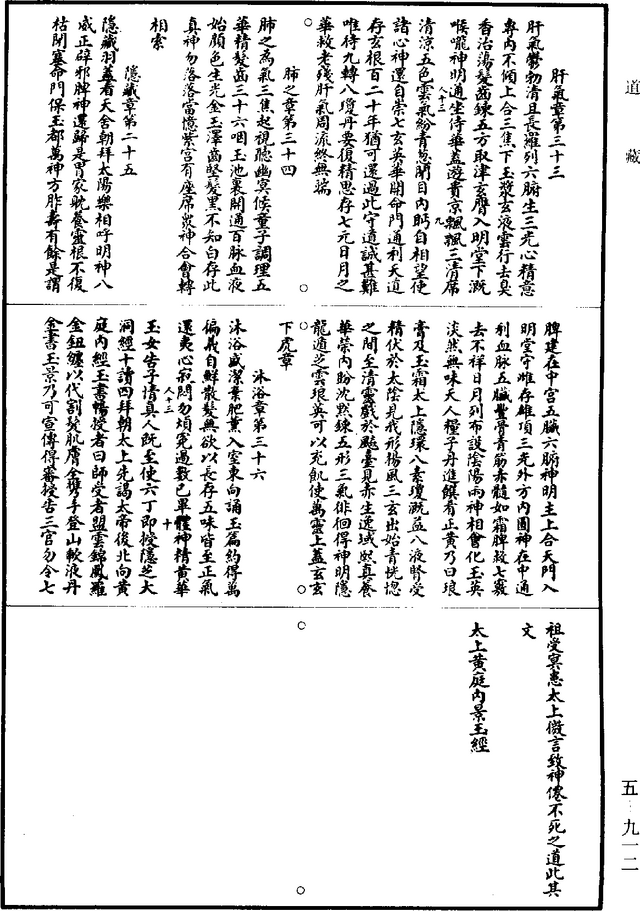 道藏
肝氣章第三十三
肝氣鬱勃清且長羅列六腑生三光心精意
專內不傾上合三焦下玉漿玄液雲行去臭
香治蕩髮齒鍊五方取津玄膺入明堂下溉
喉嚨神明通坐侍華蓋遊貴京飄颻三清席
清涼五色雲氣紛青葱閉目內眄自相望使
諸心神還自崇七玄英華開命門通利天道
存玄根百二十年猶可還過此守道誠甚難
唯待九轉八瓊丹要復精思存七元日月之
華救老殘肝氣周流終無端
肺之章第三十四
肺之為氣三焦起視聽幽冥候童子調理五
華精髮齒三十六咽玉池裏開通百脉血液
始顏色生光金玉澤齒堅髮黑不知白存此
真神勿落落當憶紫宮有座席衆神合會轉
相索
隱藏章第三十五
隱藏羽蓋看天舍朝拜太陽樂相呼明神八
威正辟邪脾神還歸是胃家耽養靈根不復
枯閉塞命門保玉都萬神方胙壽有餘是謂
脾建在中宮五臟六腑神明主上合天門入
明堂守雌存雄頂三光外方內圓神在中通
利血脉五臟豐骨青筋赤髓如霜脾救七竅
去不祥日月列布設陰陽兩神相會化玉英
淡然無味天人糧子丹進饌肴正黃乃曰琅
膏及玉霜太上隱環八素瓊溉益八液腎受
精伏於太陰見我形揚風三玄出始青恍惚
之間至清靈戲於飈臺見赤生逸域熙真養
華榮內盼沈默鍊五形三氣徘徊得神明隱
龍遁芝雲琅英可以充飢使萬靈上蓋玄玄
下虎章
沐浴章第三十六
沐浴盛潔棄肥薰入室東向誦玉篇約得萬
徧義自鮮散髮無欲以長存五味皆至正氣
還夷心寂悶勿煩冤過數已畢體神精黃華
玉女告子情真人既至使六丁即授隱芝大
洞經十讀四拜朝太上先謁太帝後北向黃
庭內經玉書暢授者曰師受者盟雲錦鳳羅
金鈕纏以代割髮肌膚全攜手登山歃液丹
金書玉景乃可宣傳得審授告三官勿令七
祖受冥患太上微言致神僊不死之道此其
文
太上黃庭內景玉經
五—九一二